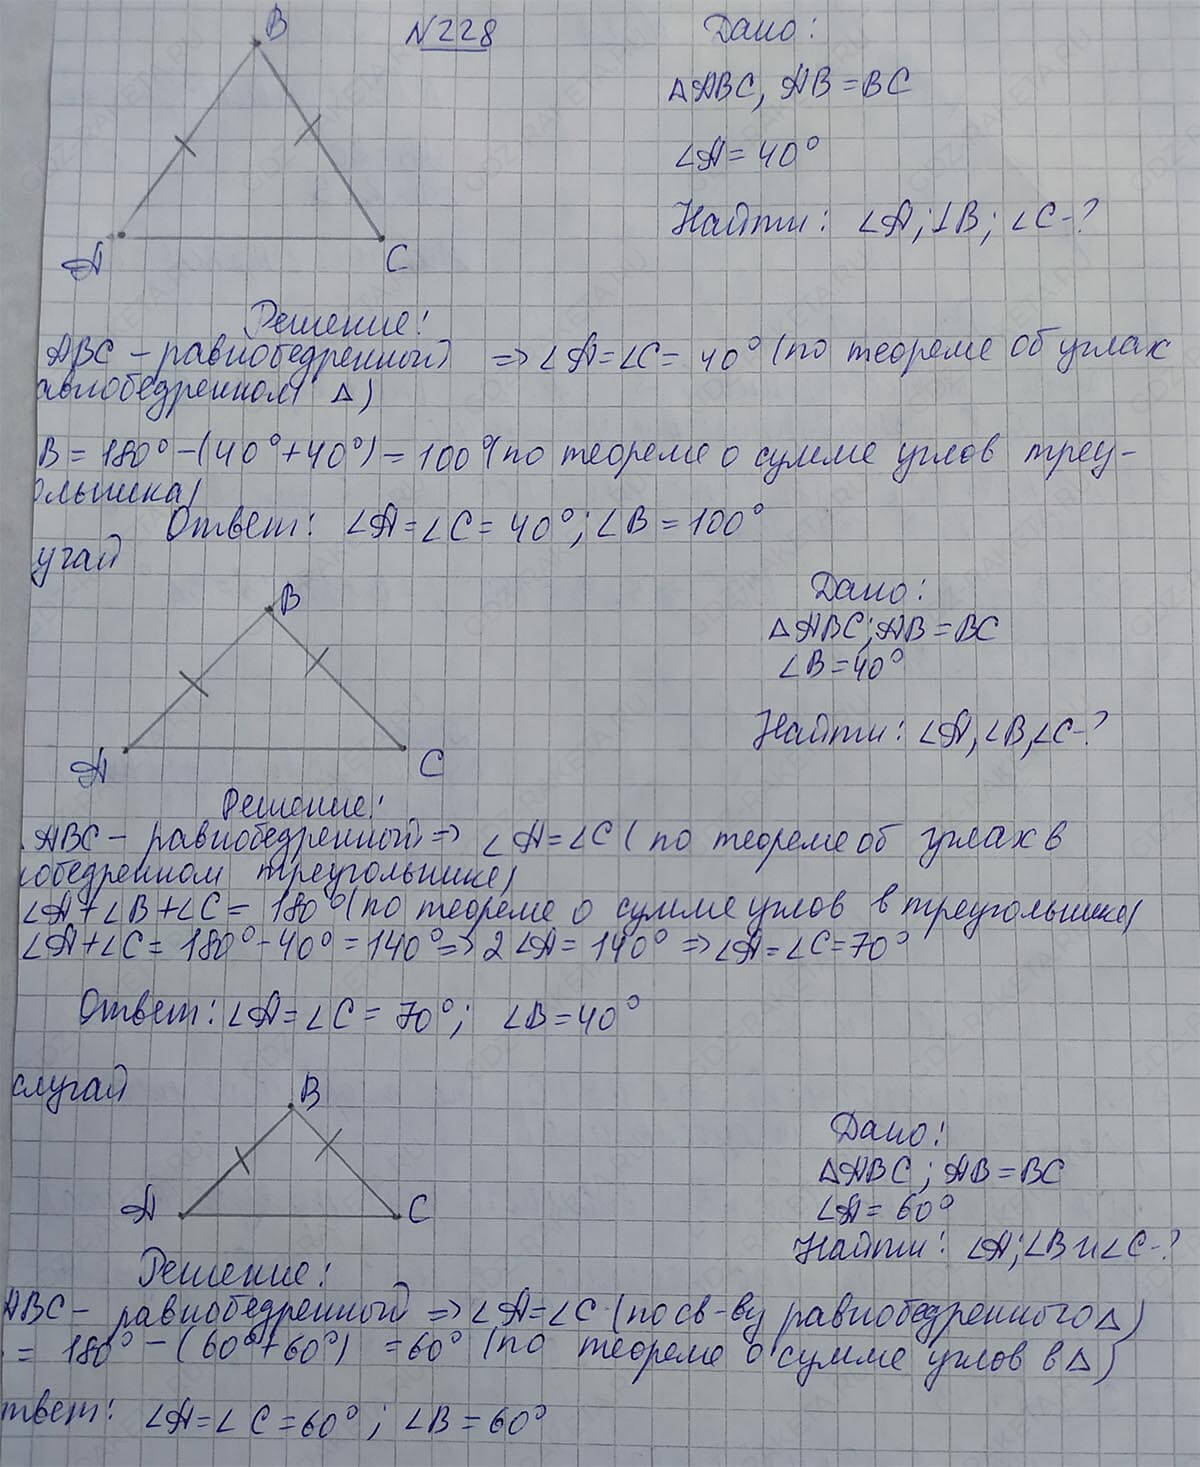 B
№228
Дано:
△ABC, AB=BC
∠A=40°
Найти: ∠A; ⊥B; ∠C-?
A
C
Решение:
ABC – равнобедренный => ∠A=∠C= 40° (по теореме об углах
авнобедренном △)
B = 180° – (40°+40°) = 100° (по теореме о сумме углов треу-
ольника)
Ответ: ∠A=∠C=40°; ∠B=100°
учай
B
Дано:
△ABC; AB=BC
∠B=40°
Найти: ∠A, ∠B, ∠C-?
A
C
Решение:
ABC – равнобедренный => ∠A=∠C (по теореме об углах в
обедренном треугольнике)
∠A+∠B+∠C= 180° (по теореме о сумме углов в треугольнике)
∠A+∠C= 180°-40°=140° => 2∠A= 140° => ∠A=∠C=70°
Ответ: ∠A=∠C= 70°; ∠B=40°
случай
B
Дано:
△ABC; AB=BC
∠A= 60°
Найти: ∠A; ∠B и ∠C-?
A
C
Решение:
ABC – равнобедренный => ∠A=∠C (по св-ву равнобедренного △)
= 180° – (60°+60°) =60° (по теореме о сумме углов в △)
твет: ∠A=∠C=60°; ∠B=60°